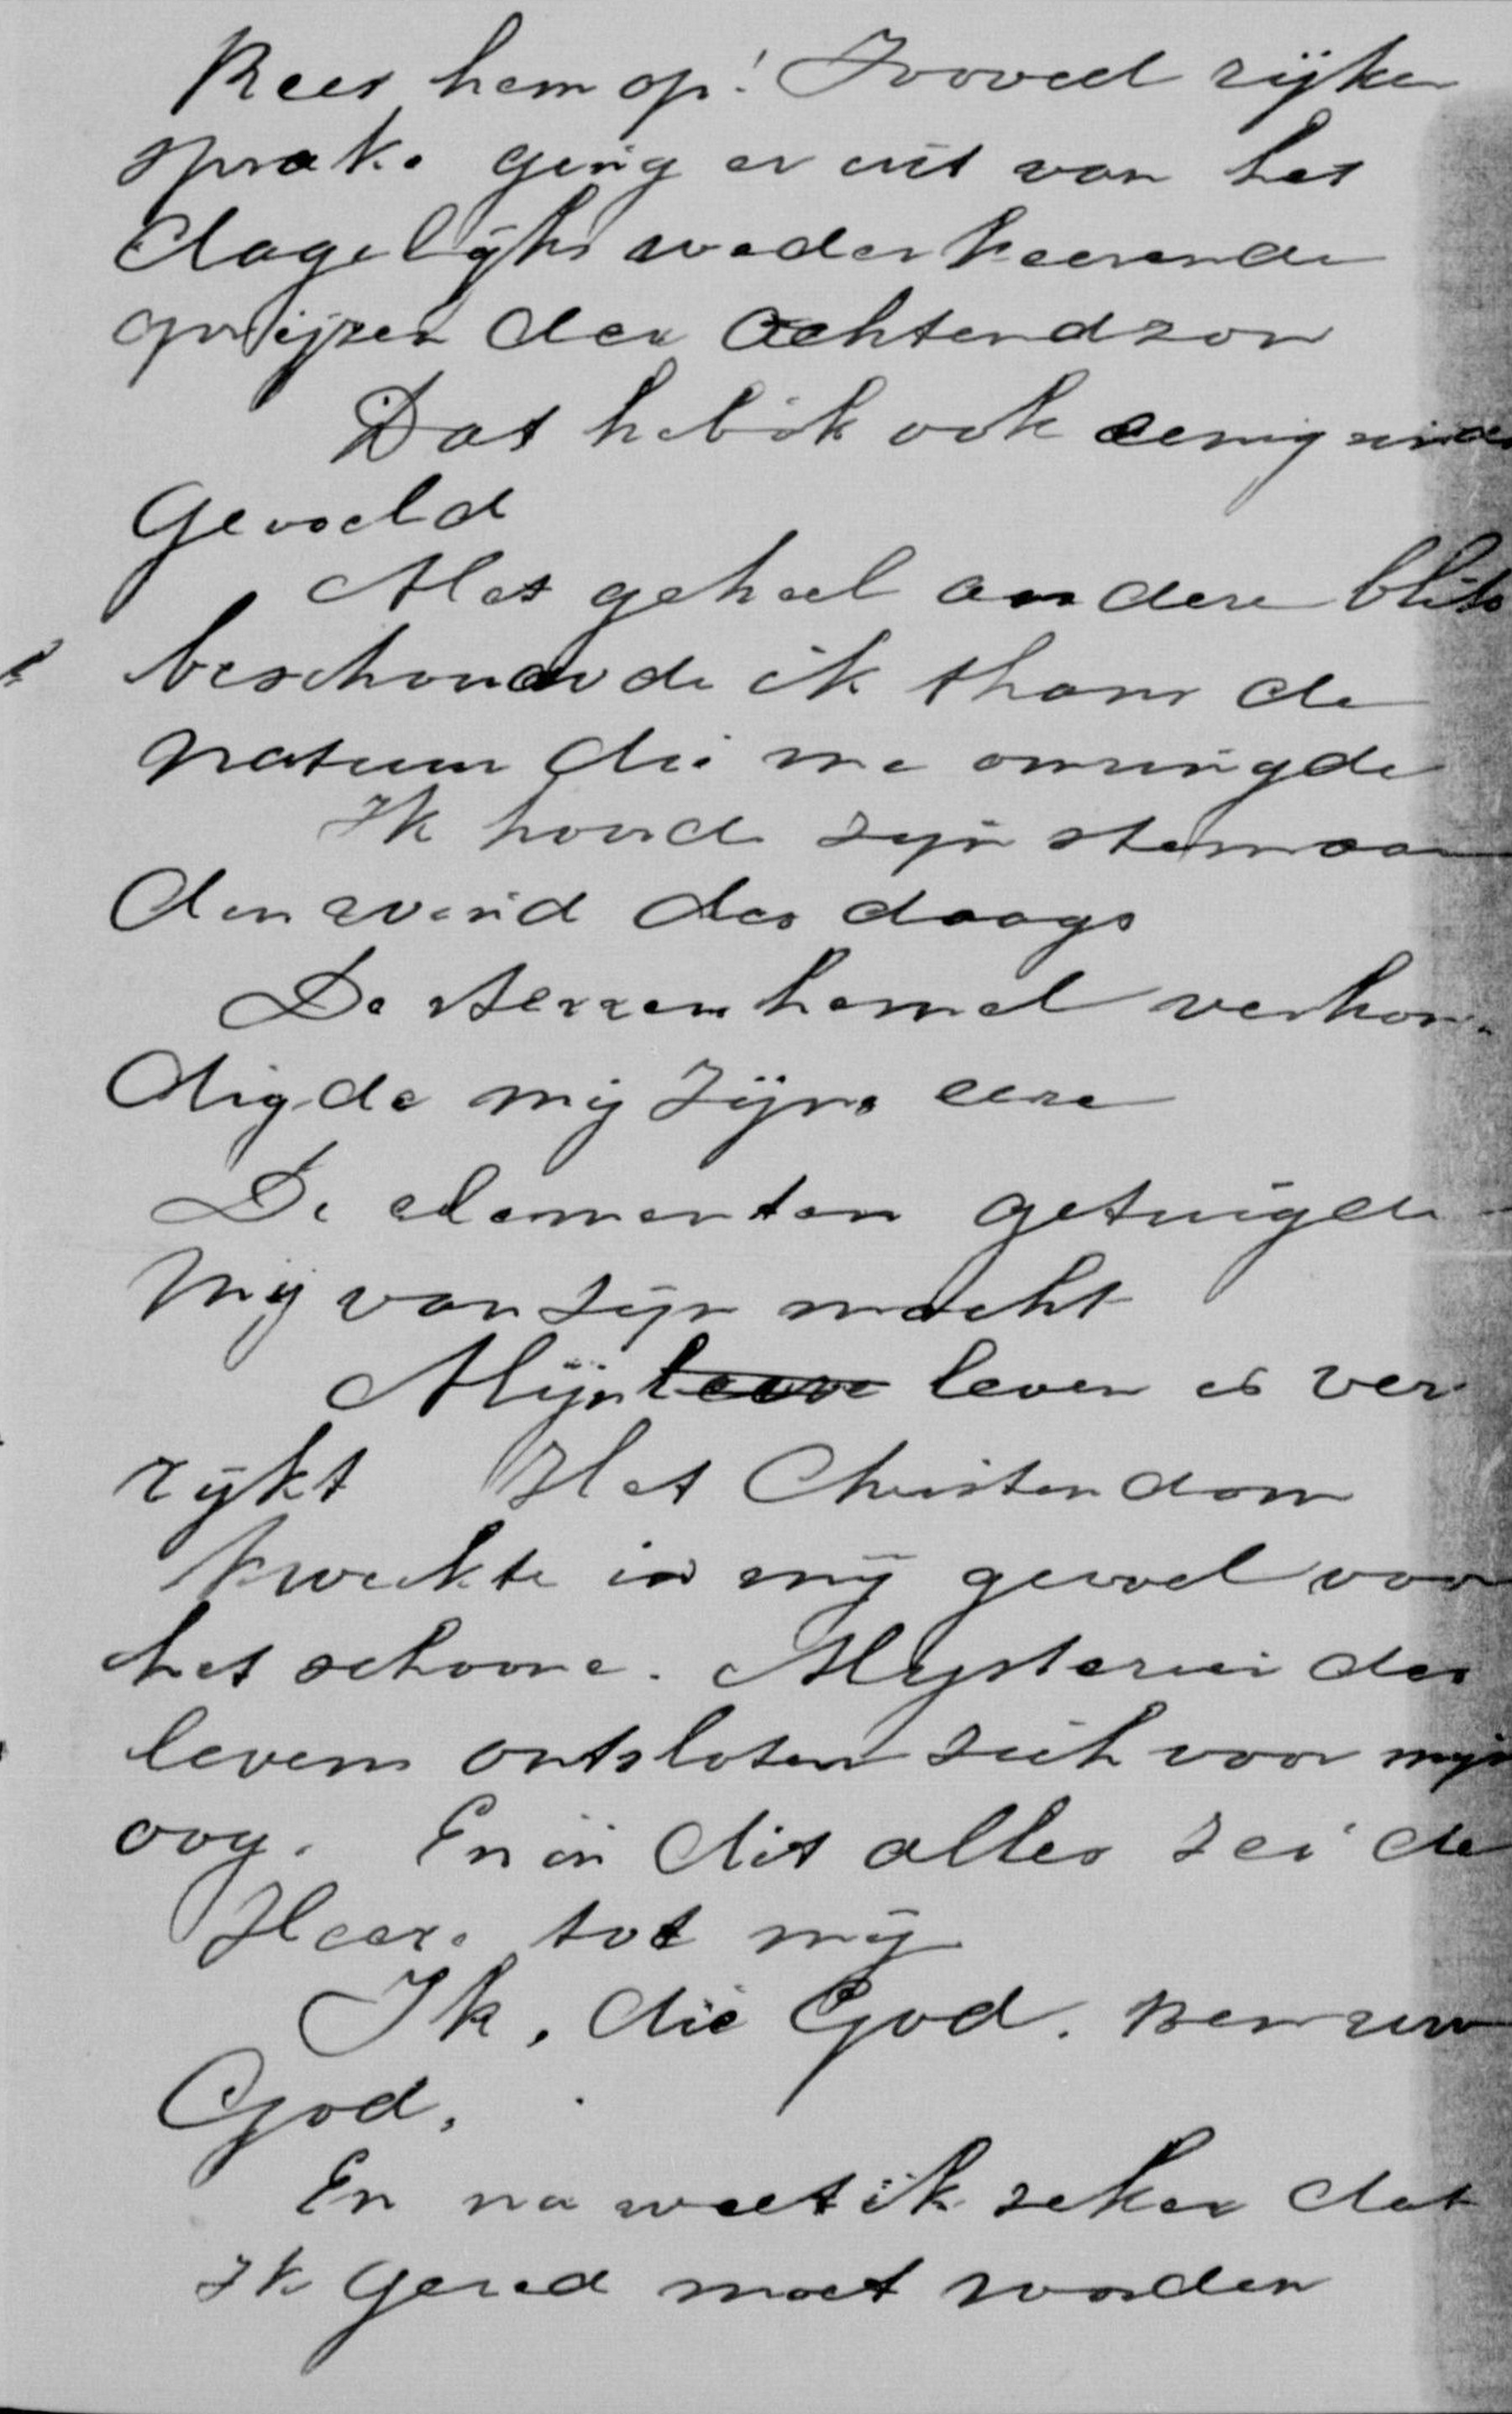 Rees hem op! Zooveel rijke
sprake ging er uit van het
dagelijks wederkeerende
oprijzen der Ochtendzon
Dat heb ik ook eenigzins
Gevoeld
Met geheel andere blik
beschouwde ik thans de
natuur die me omringde
Ik hoorde zijn stem aan
den avond des daags
De sterrenhemel verkon-
digde mij Zijne eere
De elementen getuigde
mij van zijn macht
Mijn leven is ver
rijkt Het Christendom
kweekte in mij gevoel voor
het schoone. Mysterien des
levens ontsloten zich voor mijn
oog. En in dit alles zei de
Heere tot mij
Ik, die God. ben uw
God,
En nu weet ik zeker dat
ik gered moet worden